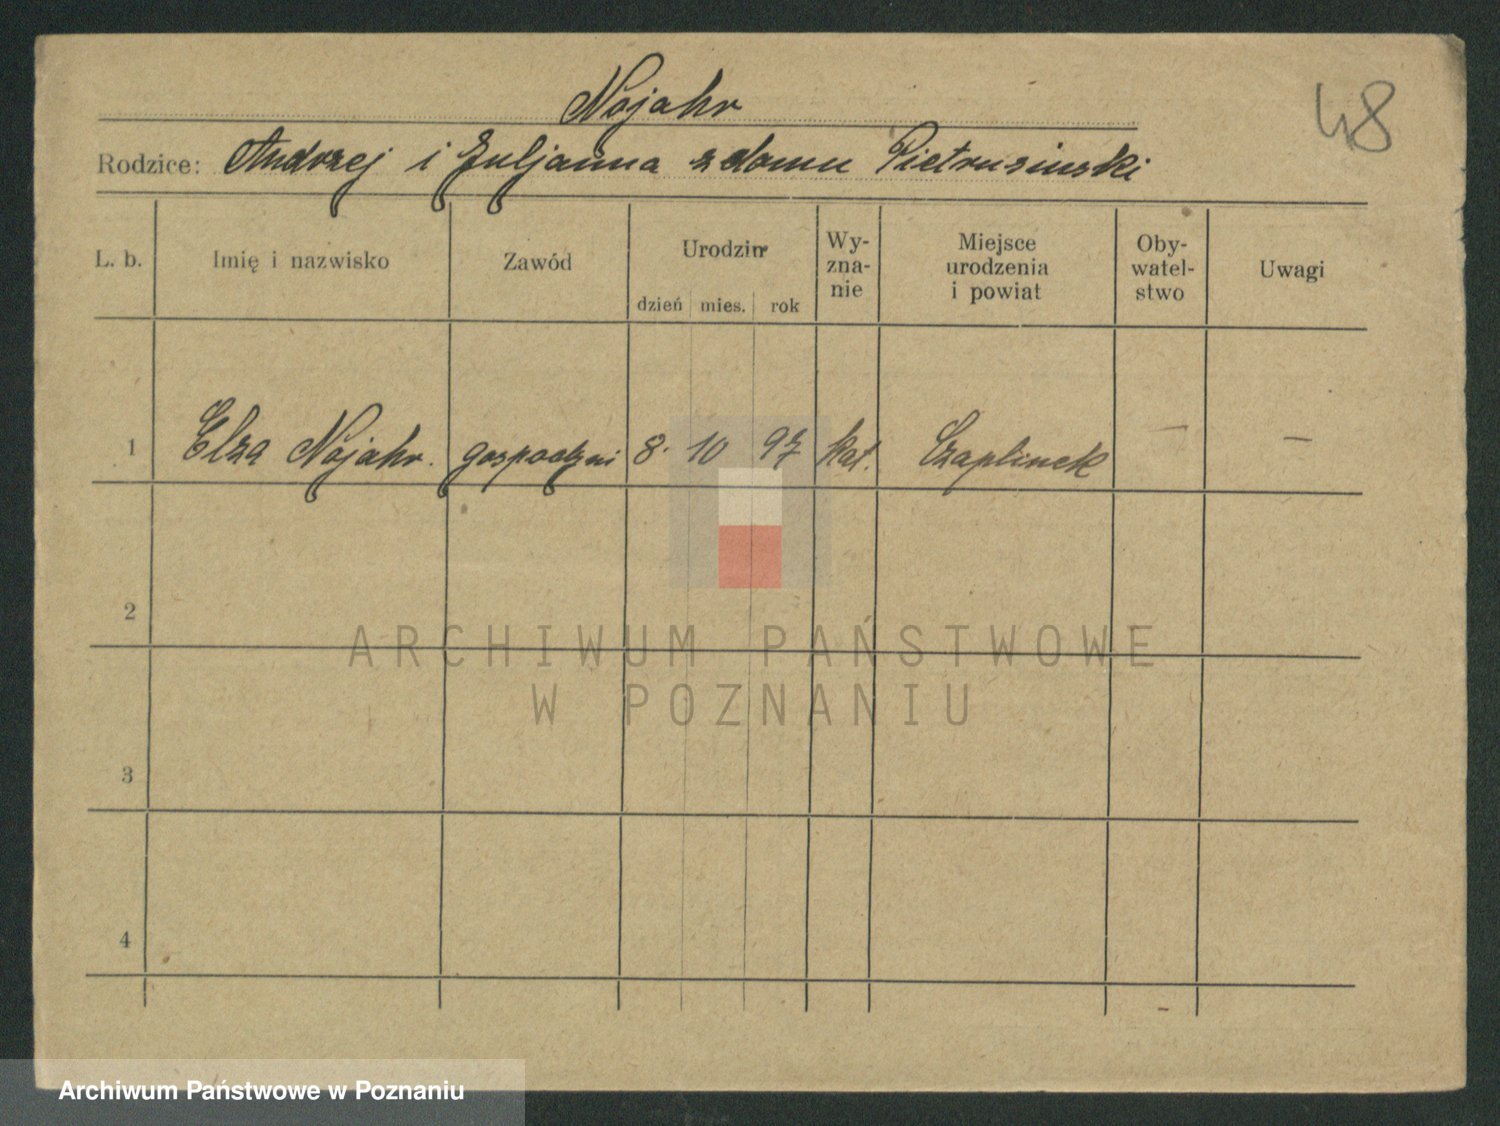 48
Nojahr
Rodzice: Andrzej i Juljanna z domu Pietrusinski
L. b. Imię i nazwisko Zawód Urodzin Wyznanie Miejsce urodzenia i powiat Obywatelstwo Uwagi
dzień mies. rok
1 Elza Nojahr. gospodyni 8. 10 97 kat. Czaplinek — —
2
ARCHIWUM PAŃSTWOWE
W POZNANIU
3
4
Archiwum Państwowe w Poznaniu